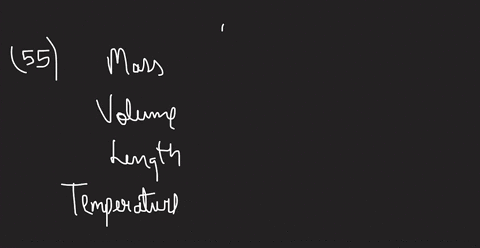 (55) Mass
Volume
Length
Temperature